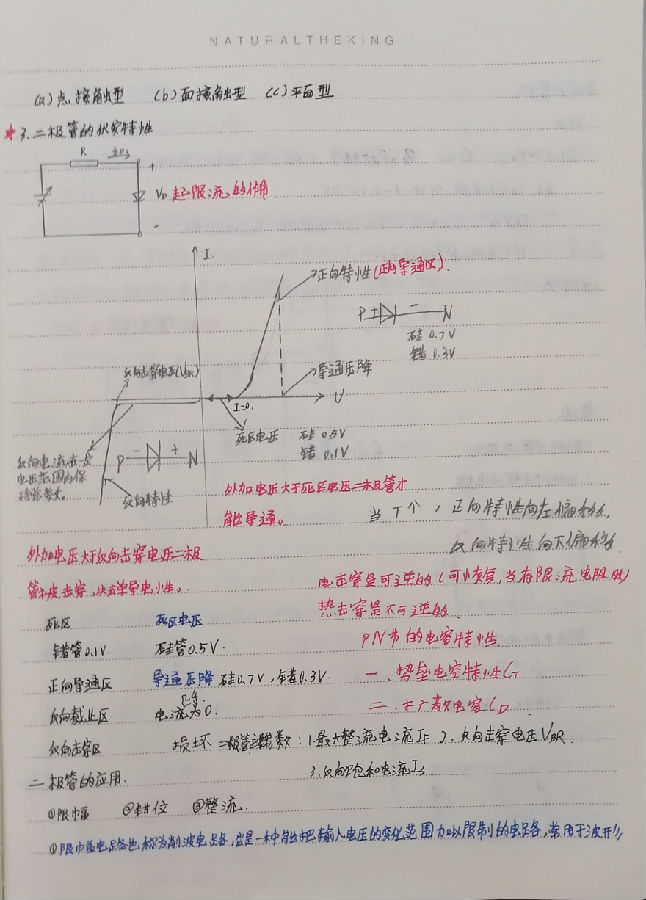 NATURALTHEKING
(a) 点接触型 (b) 面接触型 (c) 平面型
★ 3. 二极管的伏安特性
R
+
VD 起限流的作用
-
I
正向特性(正向导通区).
P + - N
硅 0.7V
锗 0.3V
导通压降
U
反向击穿电压(VBR)
死区电压 硅 0.5V
锗 0.1V
反向电流在一定
电压范围内保
持常数.
P - + N
反向特性
外加电压大于死区电压二极管才
能导通。
当T↑, 正向特性向左偏移,
反向特性向下偏移
外加电压大于反向击穿电压二极
管被击穿,失去单向导电性。
电击穿是可逆的(可恢复,当有限流电阻时)
热击穿是不可逆的
死区 死区电压
锗管0.1V 硅管0.5V.
PN节的电容特性
正向导通区 导通压降 硅0.7V,锗0.3V.
一、势垒电容特性CT
反向截止区 电流为0.
二、扩散电容CD
反向击穿区 损坏
二极管主要参数: 1.最大整流电流IF 2.反向击穿电压VBR
3.反向饱和电流IS
二极管的应用.
①限幅 ②钳位 ③整流.
①限幅电路也称为削波电路,它是一种能把输入电压的变化范围加以限制的电路,常用于波形